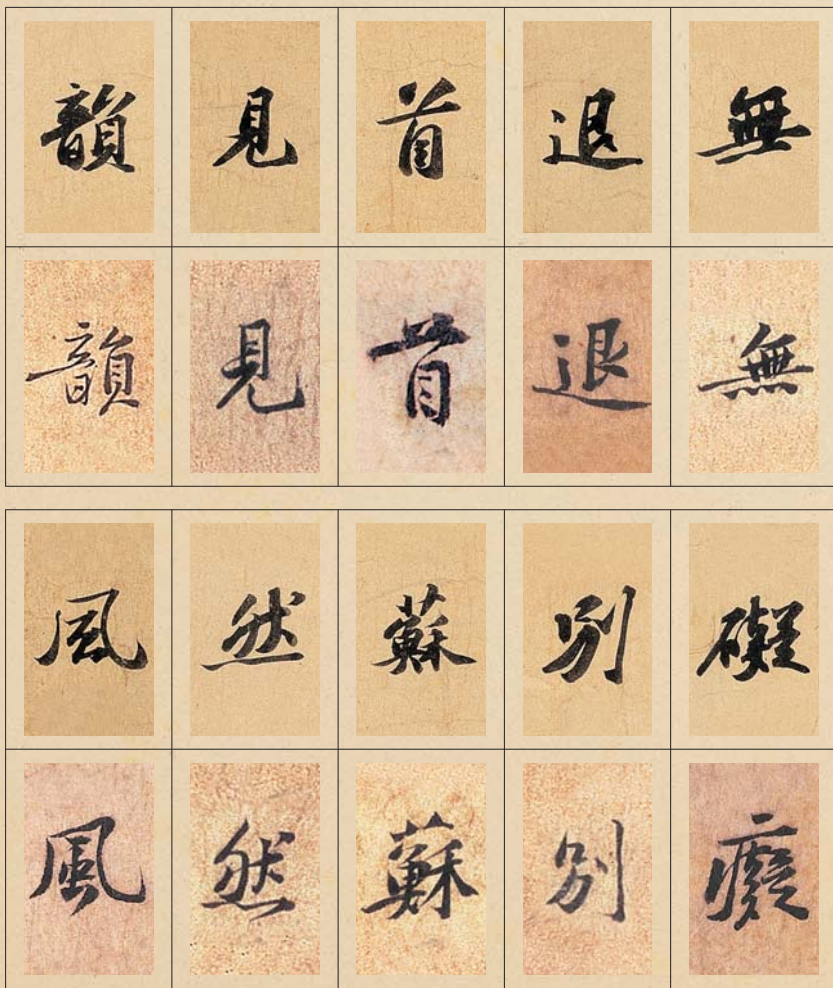 韻見首退無
韻見首退無
風然蘇別礙
風然蘇別癡